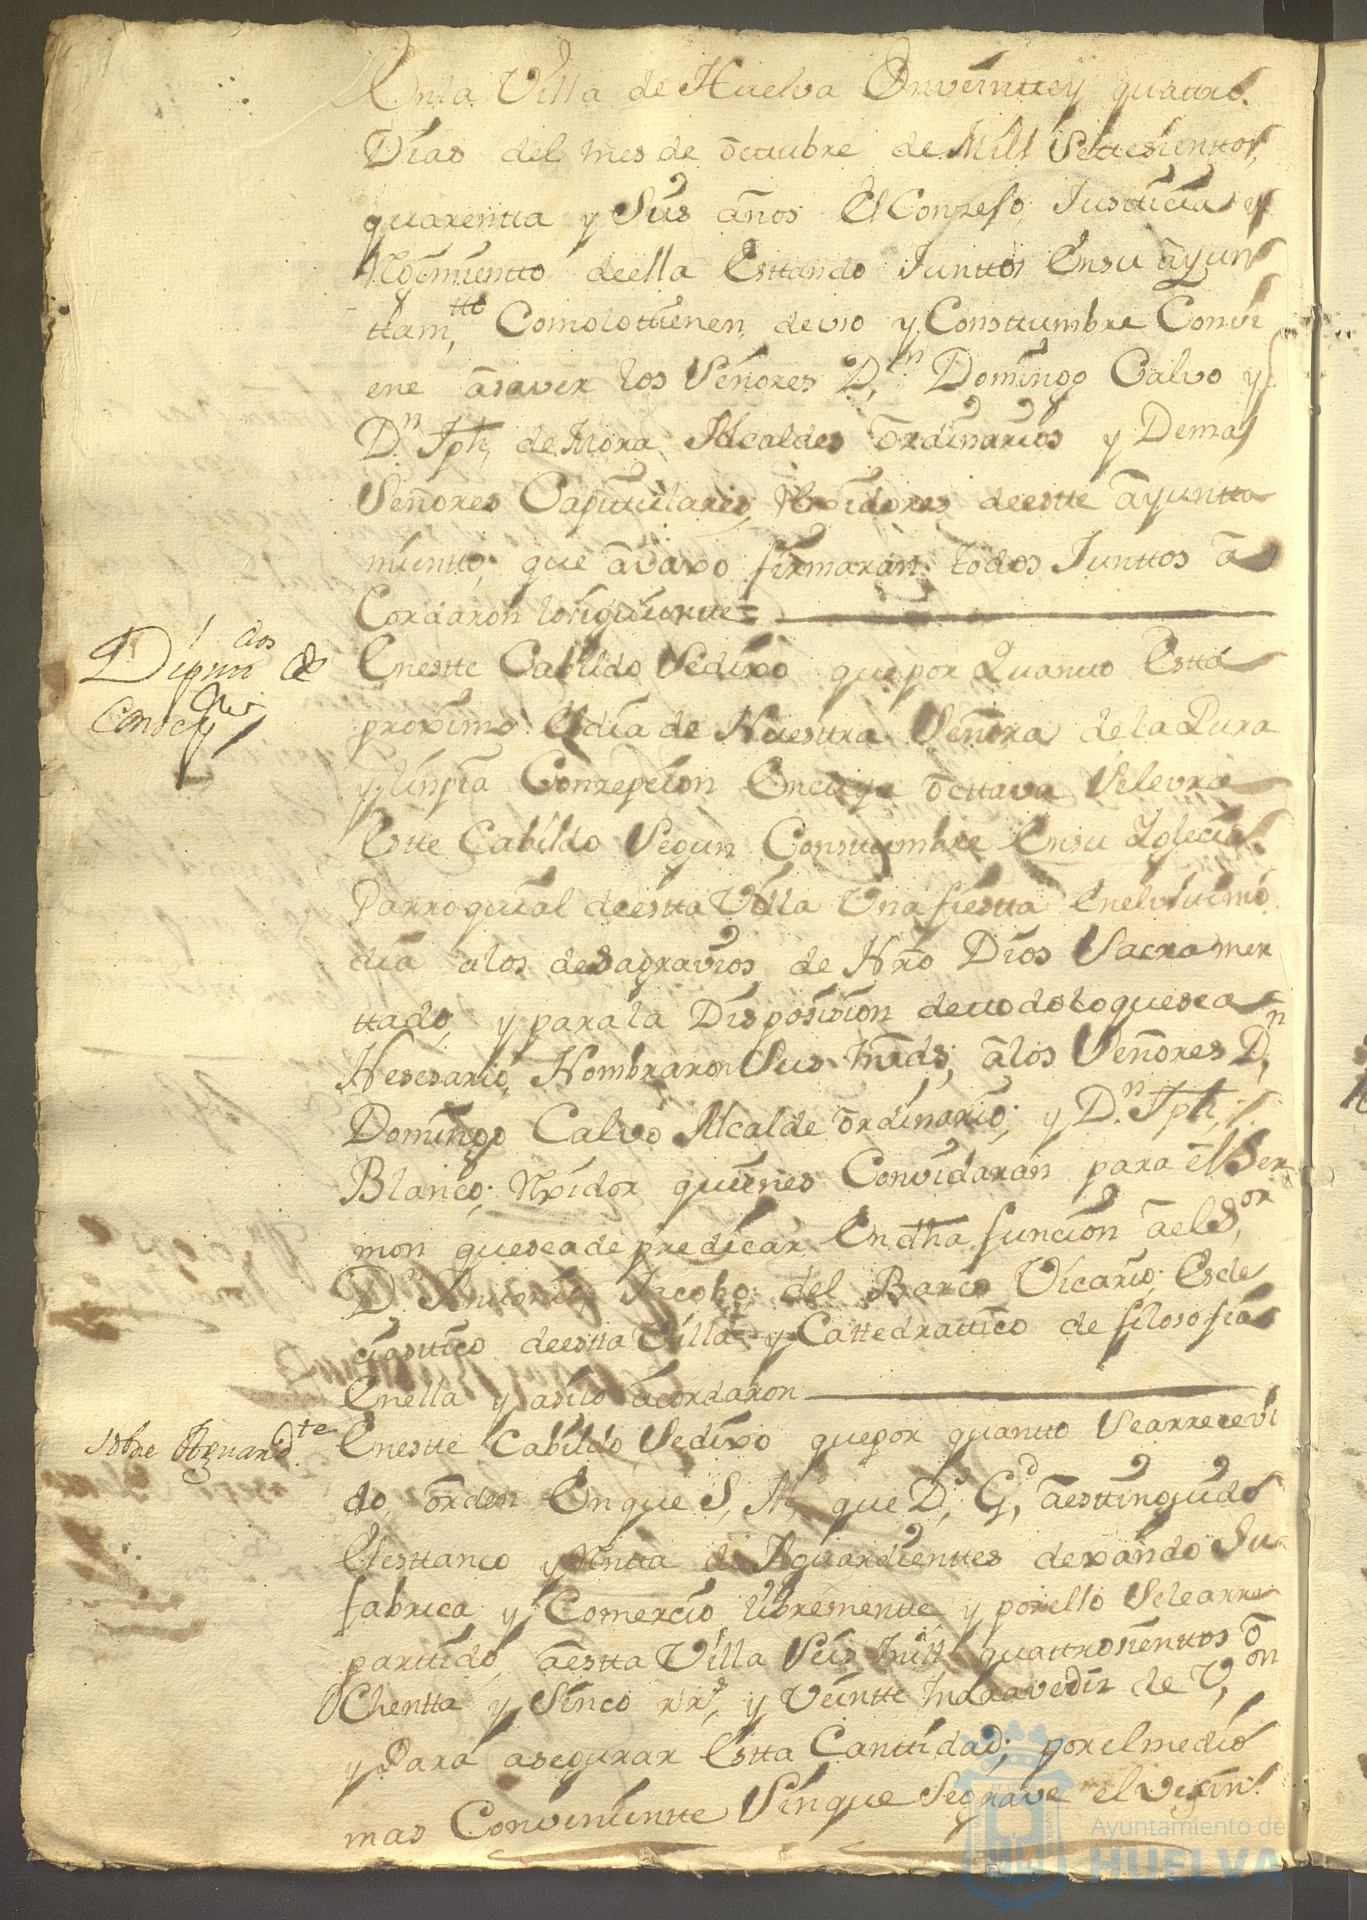 En la Villa de Huelva En veintte y quattro
Dias del mes de octtubre de Mill Settesienttos
quarentta y Seis años El Consejo Justticia y
Rejimientto de ella Esttando Junttos En su ayun
ttam.tto Como lo ttienen de uso y Consttumbre Convi
ene a saver los Señores D.n Domingo Calvo y
D.n Jph de Mora Alcaldes ordinarios y Demas
Señores Capittulares Rexidores de estte ayuntta
mientto que avaxo firmaran todos Junttos a
Cordaron lo siguientte =
Diputtados de
Consep.on
En estte Cabildo Se dixo que por Quantto Estta
proximo El dia de Nuesttra Señora de la Pura
y linpia Consepcion En cuya octtava Selevra
Estte Cabildo Segun Consttumbre En su Yglecia
Parroquial de estta Villa Una fiestta En el ulttimo
dia a los desagravios de Nro Dios Sacramen
ttado y para la Disposision de ttodo lo que sea
Nesesario Nombraron Sus mrds, a los Señores D.n
Domingo Calvo Alcalde ordinario; y D.n Jph
Blanco, Rxidor quienes Convidaran para el Ser
mon que se a de predicar En dha funcion a el S.or
D.n Anttonio Jacobo del Barco Vicario Ecle
ciasttico de estta Villa y Cattedrattico de filosofia
En ella y asi lo acordaron
sobre Aguard.te
En estte Cabildo Se dixo que por quantto Se a rrecevi
do orden En que S, M, que D, G.d a esttinguido
El esttanco y Rentta de Aguardienttes dexando Su
fabrica y Comercio librementte y por ello Se le a rre
parttido a estta Villa Seis mill quattrosienttos o
Chentta y Sinco rr.s y Veintte maravediz de V.on
y Para asegurar Estta Canttidad; por el medio
mas Convenientte Sin que Se grave el vesin.
Ayuntamiento de
HUELVA